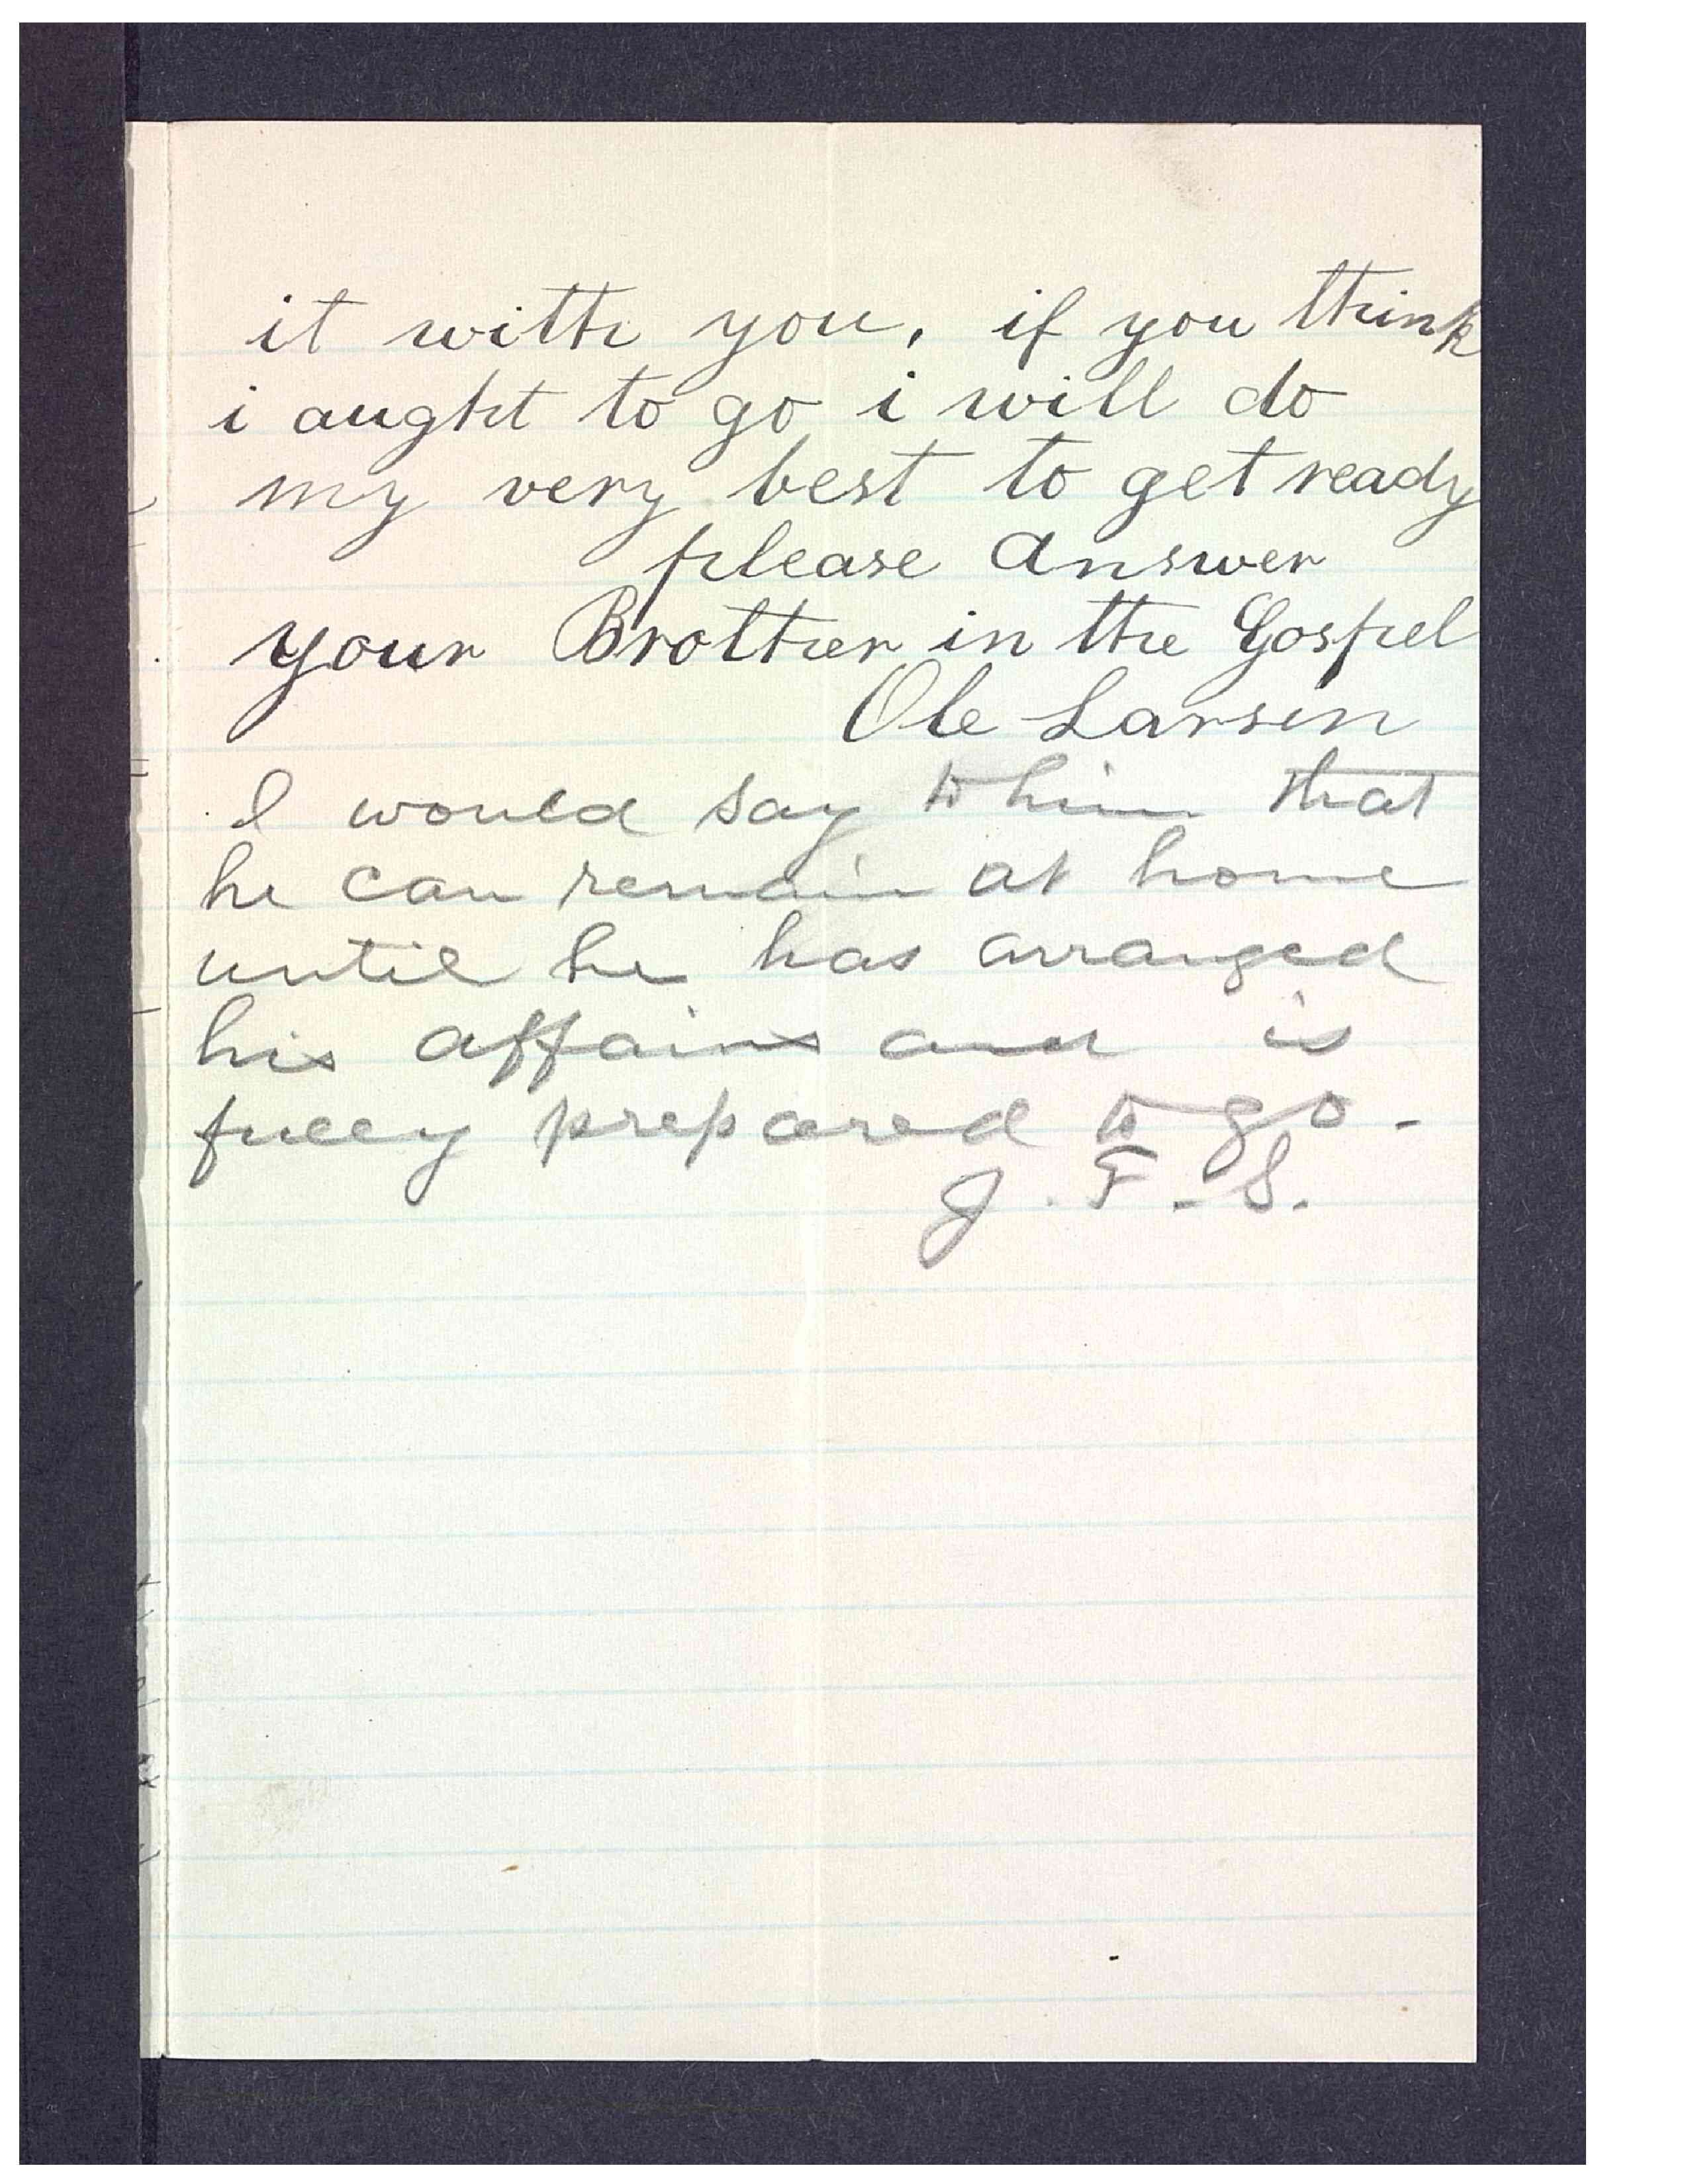 it with you, if you think
i aught to go i will do
my very best to get ready
please Answer
your Brother in the Gospel
Ole Larsen
I would say to him that
he can remain at home
until he has arranged
his affairs and is
fully prepared to go.
J. F. S.